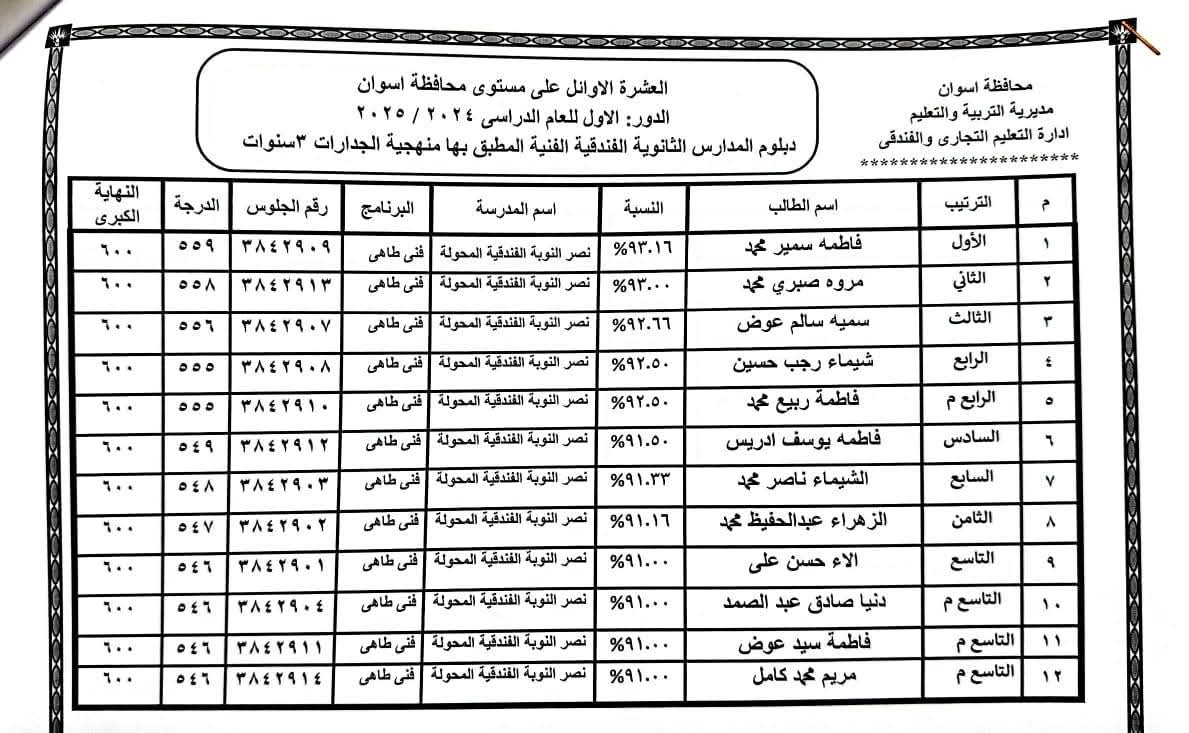 محافظة اسوان
مديرية التربية والتعليم
ادارة التعليم التجارى والفندقى
**********************
العشرة الاوائل على مستوى محافظة اسوان
الدور: الاول للعام الدراسى ٢٠٢٤ / ٢٠٢٥
دبلوم المدارس الثانوية الفندقية الفنية المطبق بها منهجية الجدارات ٣سنوات
م الترتيب اسم الطالب النسبة اسم المدرسة البرنامج رقم الجلوس الدرجة النهاية الكبرى
١ الأول فاطمه سمير محمد ٩٣.١٦% نصر النوبة الفندقية المحولة فنى طاهى ٣٨٤٢٩٠٩ ٥٥٩ ٦٠٠
٢ الثاني مروه صبري محمد ٩٣.٠٠% نصر النوبة الفندقية المحولة فنى طاهى ٣٨٤٢٩١٣ ٥٥٨ ٦٠٠
٣ الثالث سميه سالم عوض ٩٢.٦٦% نصر النوبة الفندقية المحولة فنى طاهى ٣٨٤٢٩٠٧ ٥٥٦ ٦٠٠
٤ الرابع شيماء رجب حسين ٩٢.٥٠% نصر النوبة الفندقية المحولة فنى طاهى ٣٨٤٢٩٠٨ ٥٥٥ ٦٠٠
٥ الرابع م فاطمة ربيع محمد ٩٢.٥٠% نصر النوبة الفندقية المحولة فنى طاهى ٣٨٤٢٩١٠ ٥٥٥ ٦٠٠
٦ السادس فاطمه يوسف ادريس ٩١.٥٠% نصر النوبة الفندقية المحولة فنى طاهى ٣٨٤٢٩١٢ ٥٤٩ ٦٠٠
٧ السابع الشيماء ناصر محمد ٩١.٣٣% نصر النوبة الفندقية المحولة فنى طاهى ٣٨٤٢٩٠٣ ٥٤٨ ٦٠٠
٨ الثامن الزهراء عبدالحفيظ محمد ٩١.١٦% نصر النوبة الفندقية المحولة فنى طاهى ٣٨٤٢٩٠٢ ٥٤٧ ٦٠٠
٩ التاسع الاء حسن على ٩١.٠٠% نصر النوبة الفندقية المحولة فنى طاهى ٣٨٤٢٩٠١ ٥٤٦ ٦٠٠
١٠ التاسع م دنيا صادق عبد الصمد ٩١.٠٠% نصر النوبة الفندقية المحولة فنى طاهى ٣٨٤٢٩٠٤ ٥٤٦ ٦٠٠
١١ التاسع م فاطمة سيد عوض ٩١.٠٠% نصر النوبة الفندقية المحولة فنى طاهى ٣٨٤٢٩١١ ٥٤٦ ٦٠٠
١٢ التاسع م مريم محمد كامل ٩١.٠٠% نصر النوبة الفندقية المحولة فنى طاهى ٣٨٤٢٩١٤ ٥٤٦ ٦٠٠